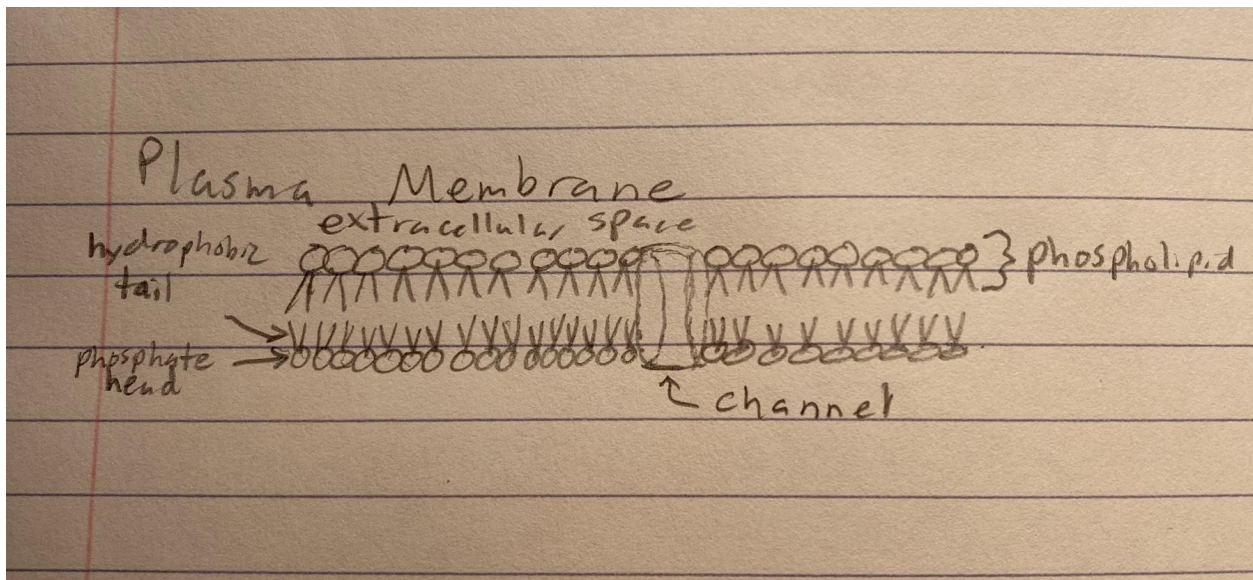 Plasma Membrane
extracellular space
hydrophobic
tail
phospholipid
phosphate
head
channel